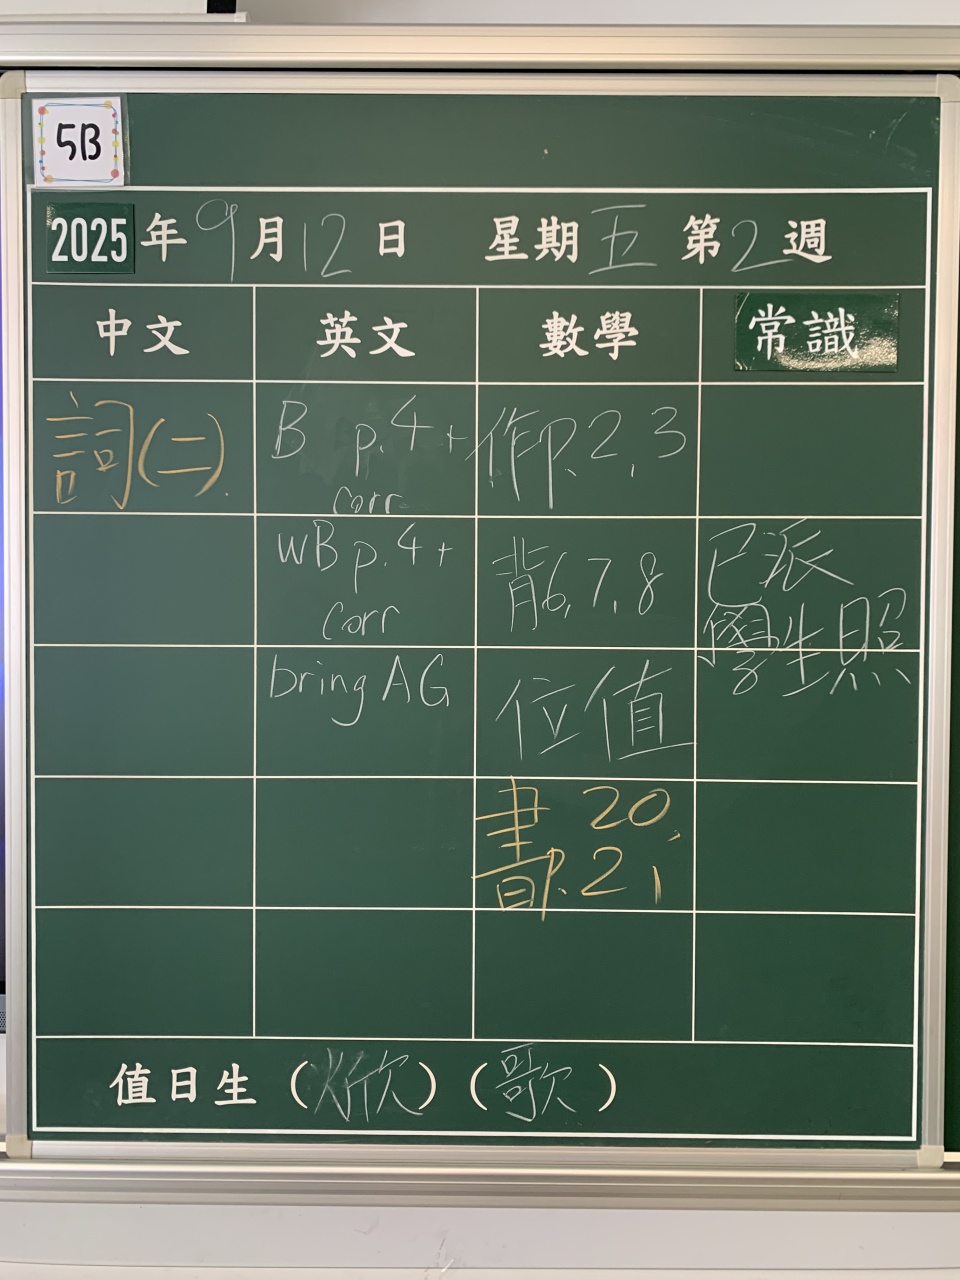 5B
2025年9月12日 星期五 第2週
中文 英文 數學 常識
詞(二)
B p.4 +
corr
作P.2,3
WB p.4 +
corr
背6,7,8
已派
學生照
bring AG
位值
書P.20,
21
值日生 (焮) (歌)